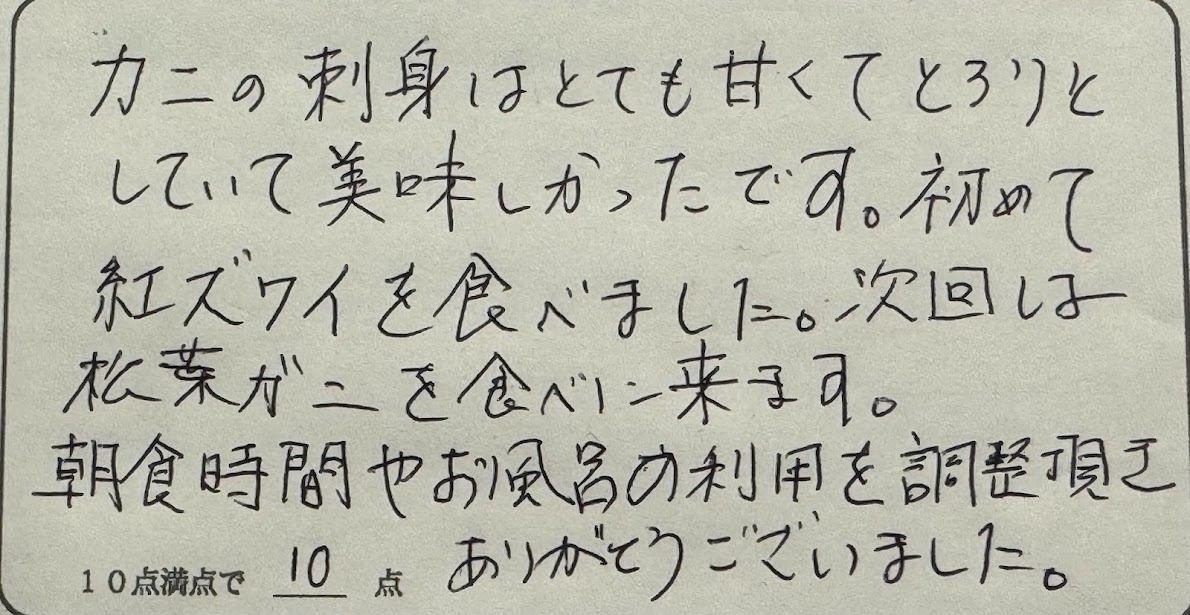 カニの刺身はとても甘くてとろりと
していて美味しかったです。初めて
紅ズワイを食べました。次回は
松葉ガニを食べに来ます。
朝食時間やお風呂の利用を調整頂き
ありがとうございました。
10点満点で 10 点